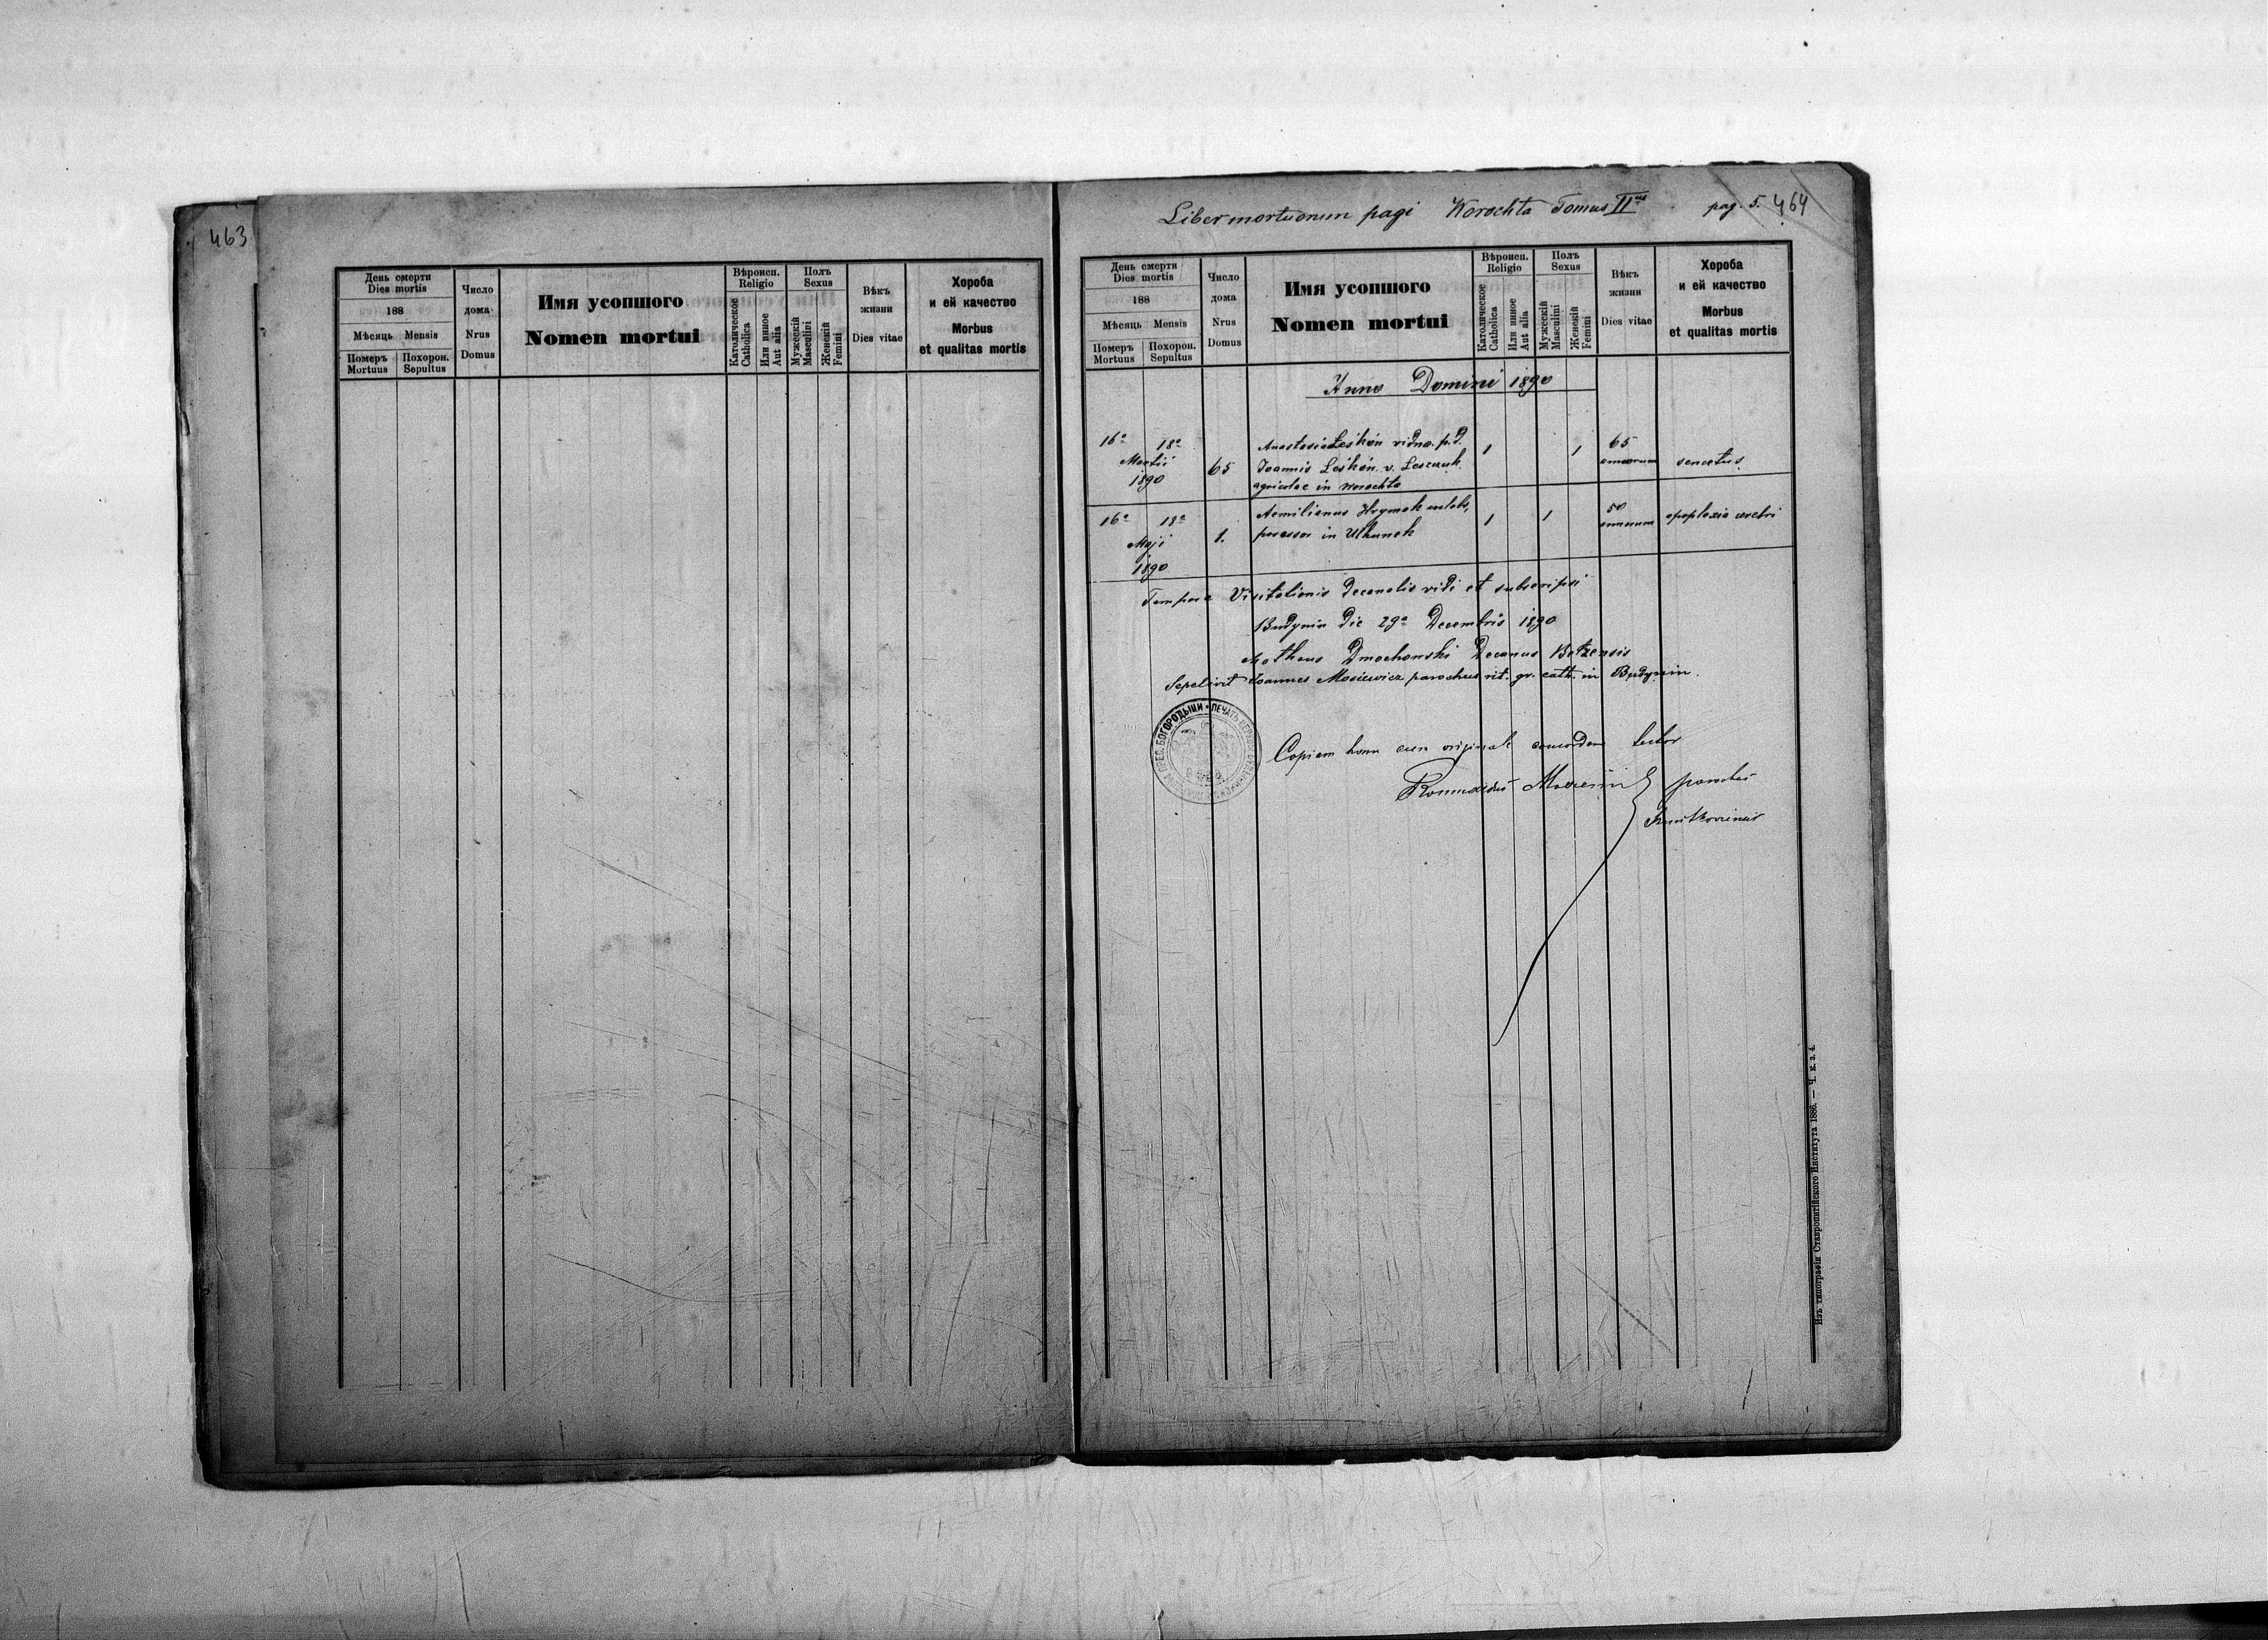 463
День смерти
Dies mortis
188
Мѣсяць Mensis
Померъ Похорон.
Mortuus Sepultus
Число
дома
Nrus
Domus
Имя усопшого
Nomen mortui
Вѣроисп.
Religio
Католическое
Catholica
Или инное
Aut alia
Полъ
Sexus
Мужескій
Masculini
Женскій
Femini
Вѣкъ
жизни
Dies vitae
Хороба
и ей качество
Morbus
et qualitas mortis
Liber mortuorum pagi Worochta Tomus II pag. 5. 464
День смерти
Dies mortis
188
Мѣсяць Mensis
Померъ Похорон.
Mortuus Sepultus
Число
дома
Nrus
Domus
Имя усопшого
Nomen mortui
Вѣроисп.
Religio
Католическое
Catholica
Или инное
Aut alia
Полъ
Sexus
Мужескій
Masculini
Женскій
Femini
Вѣкъ
жизни
Dies vitae
Хороба
и ей качество
Morbus
et qualitas mortis
Anno Domini 1890
16a 18a
Martii
1890
65
Anastasia Leskön vidua p. d.
Joannis Leskön v. Leszczuk
agricolae in Worochta
1
1
65
annorum
senectus
16a 18a
Maji
1890
1.
Aemilianus Hrymak
possessor in Uhrynek
1
1
50
annorum
apoplexia cerebri
Tempore Visitationis decanalis vidi et subscripsi
Budynin die 29a Decembris 1890
Matheus Dmochowski Decanus Belzensis
Sepelivit Joannes Mosiewicz parochus rit. gr. cath. in Budynin.
ПРЕС. БОГОРОДЫЦИ • ПЕЧАТЬ
Copiam hanc cum originali concordem testor
Romualdus parochus
Изъ типографіи Ставропигійского Института 1886. — Ч. к. з. 4.